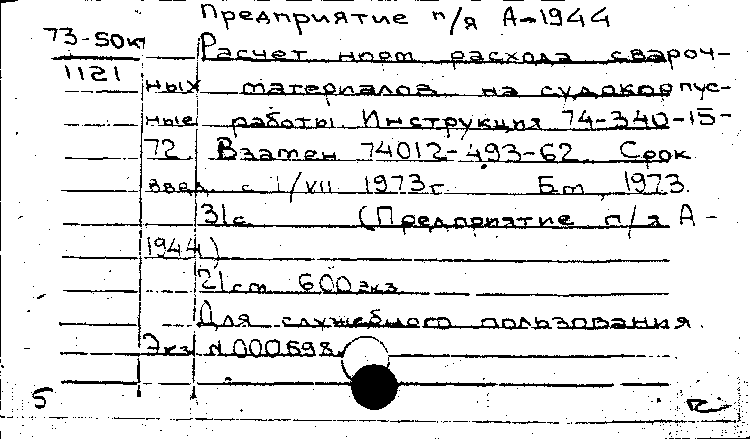 Предприятие п/я А-1944
73-50к
1121
Расчет норм расхода свароч-
ных материалов на судокорпус-
ные работы Инструкция 74-340-15-
72. Взамен 74012-493-62. Срок
введ. с 1/VII 1973г. Бт, 1973.
31с. (Предприятие п/я А-
1944)
21см 600экз.
Для служебного пользования.
Экз N 000698.
5